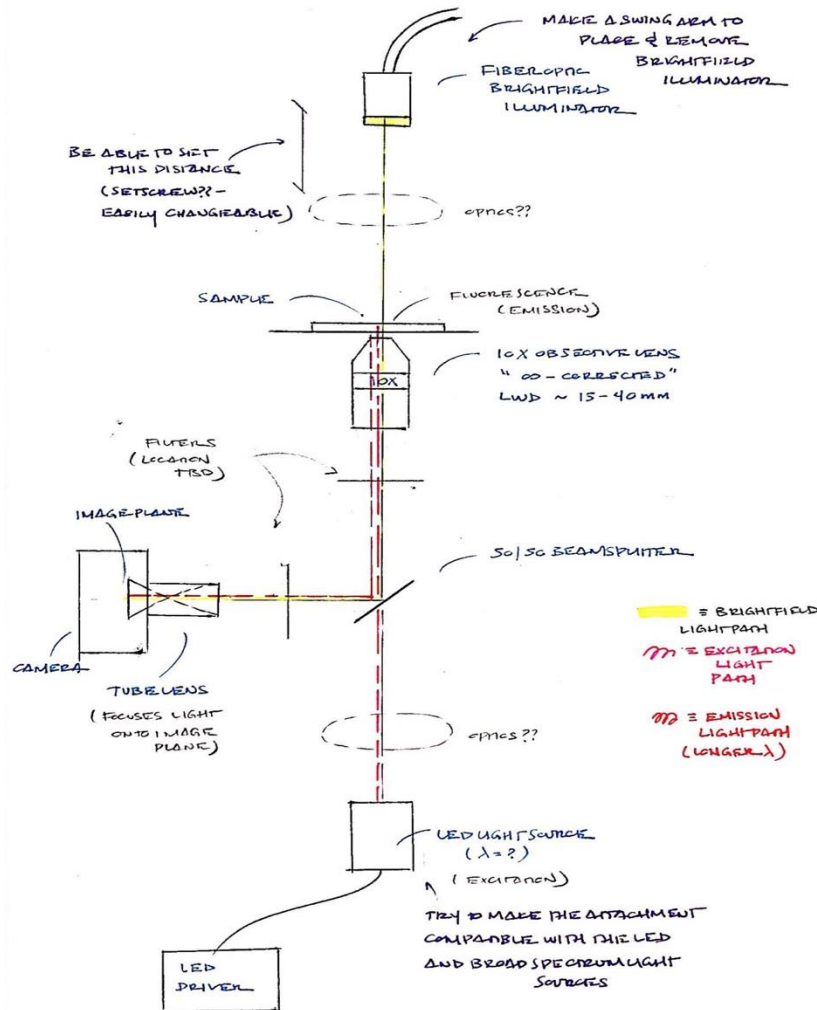 MAKE A SWING ARM TO
PLACE & REMOVE
BRIGHTFIELD
ILLUMINATOR
FIBEROPTIC
BRIGHTFIELD
ILLUMINATOR
BE ABLE TO SET
THIS DISTANCE
(SETSCREW?? -
EASILY CHANGEABLE)
OPTICS??
SAMPLE
FLUORESCENCE
(EMISSION)
10X OBJECTIVE LENS
"∞-CORRECTED"
LWD ~ 15-40mm
10X
FILTERS
(LOCATION
TBD)
IMAGE PLANE
50/50 BEAMSPLITTER
CAMERA
TUBE LENS
(FOCUSES LIGHT
ONTO IMAGE
PLANE)
≡ BRIGHTFIELD
LIGHTPATH
≡ EXCITATION
LIGHT
PATH
≡ EMISSION
LIGHTPATH
(LONGER λ)
OPTICS??
LED LIGHT SOURCE
(λ = ?)
(EXCITATION)
TRY TO MAKE THE ATTACHMENT
COMPATIBLE WITH THE LED
AND BROAD SPECTRUM LIGHT
SOURCES
LED
DRIVER